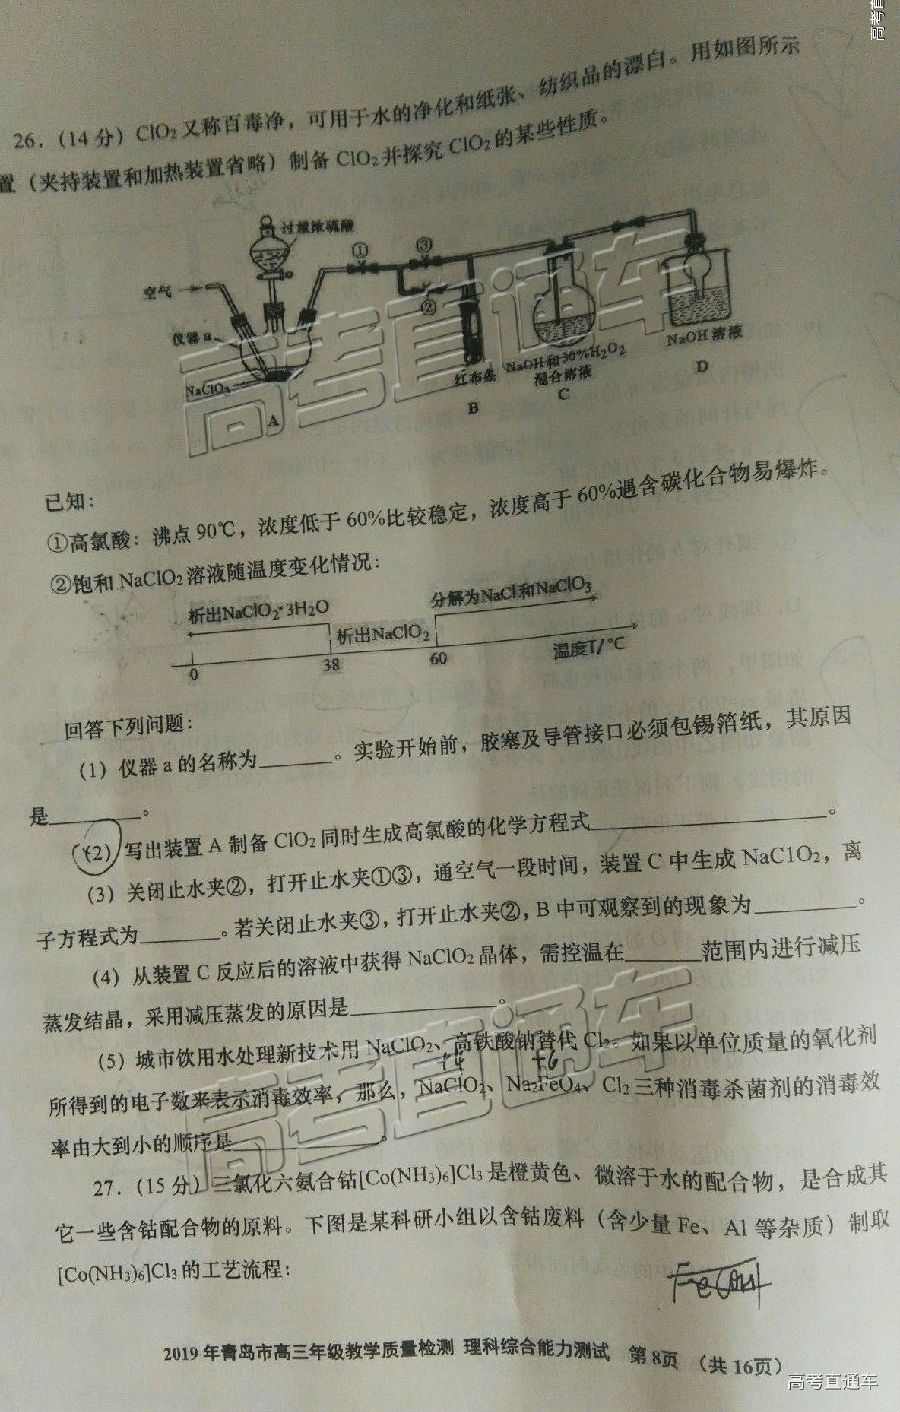 高考直
26．(14 分) ClO₂又称百毒净，可用于水的净化和纸张、纺织品的漂白。用如图所示
置（夹持装置和加热装置省略）制备 ClO₂并探究 ClO₂的某些性质。
过量浓硫酸
空气
①
③
②
仪器 a
NaClO₃
红布条
NaOH和30%H₂O₂
混合溶液
NaOH 溶液
A
B
C
D
高考直通车
已知：
①高氯酸：沸点 90℃，浓度低于 60%比较稳定，浓度高于 60%遇含碳化合物易爆炸。
②饱和 NaClO₂溶液随温度变化情况：
析出NaClO₂·3H₂O
析出NaClO₂
分解为NaCl和NaClO₃
0
38
60
温度T/℃
回答下列问题：
(1) 仪器 a 的名称为______。实验开始前，胶塞及导管接口必须包锡箔纸，其原因
是________。
(2) 写出装置 A 制备 ClO₂同时生成高氯酸的化学方程式____________________。
(3) 关闭止水夹②，打开止水夹①③，通空气一段时间，装置 C 中生成 NaClO₂，离
子方程式为_______。若关闭止水夹③，打开止水夹②，B 中可观察到的现象为_________。
(4) 从装置 C 反应后的溶液中获得 NaClO₂晶体，需控温在______范围内进行减压
蒸发结晶，采用减压蒸发的原因是____________。
(5) 城市饮用水处理新技术用 NaClO₂、高铁酸钠替代 Cl₂。如果以单位质量的氧化剂
+4 +6
所得到的电子数来表示消毒效率，那么，NaClO₂、Na₂FeO₄、Cl₂三种消毒杀菌剂的消毒效
率由大到小的顺序是____________。
高考直通车
27．(15 分) 三氯化六氨合钴[Co(NH₃)₆]Cl₃是橙黄色、微溶于水的配合物，是合成其
它一些含钴配合物的原料。下图是某科研小组以含钴废料（含少量 Fe、Al 等杂质）制取
[Co(NH₃)₆]Cl₃的工艺流程：
2019 年青岛市高三年级教学质量检测 理科综合能力测试 第 8页 （共 16页）
高考直通车